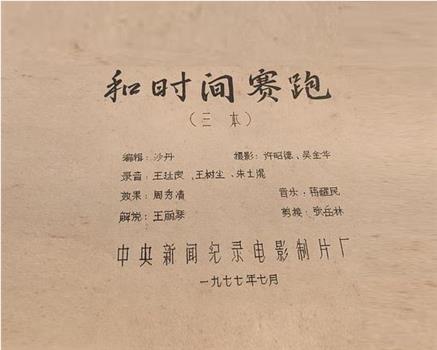 和时间赛跑
（三本）
编辑：沙丹 摄影：许昭德、吴金华
录音：王廷良、王树尘、朱士混
效果：周秀清 音乐：韩蕴民
解说：王丽琴 剪接：张岳林
中央新闻纪录电影制片厂
一九七七年七月